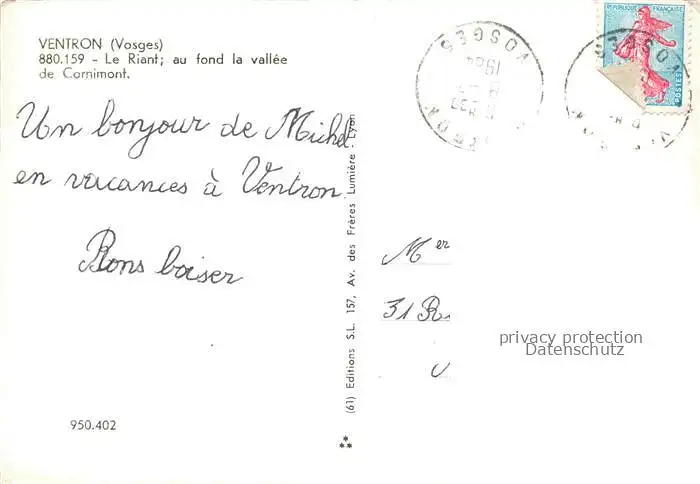 VENTRON (Vosges)
880.159 - Le Riant; au fond la vallée
de Cornimont.
Un bonjour de Michel
en vacances à Ventron
Bons baiser
950.402
(61) Editions S.L. 157, Av. des Frères Lumière - Lyon
VOSGES
1964
REPUBLIQUE FRANÇAISE
POSTES
VOSGES
Mer
31 R
privacy protection
Datenschutz